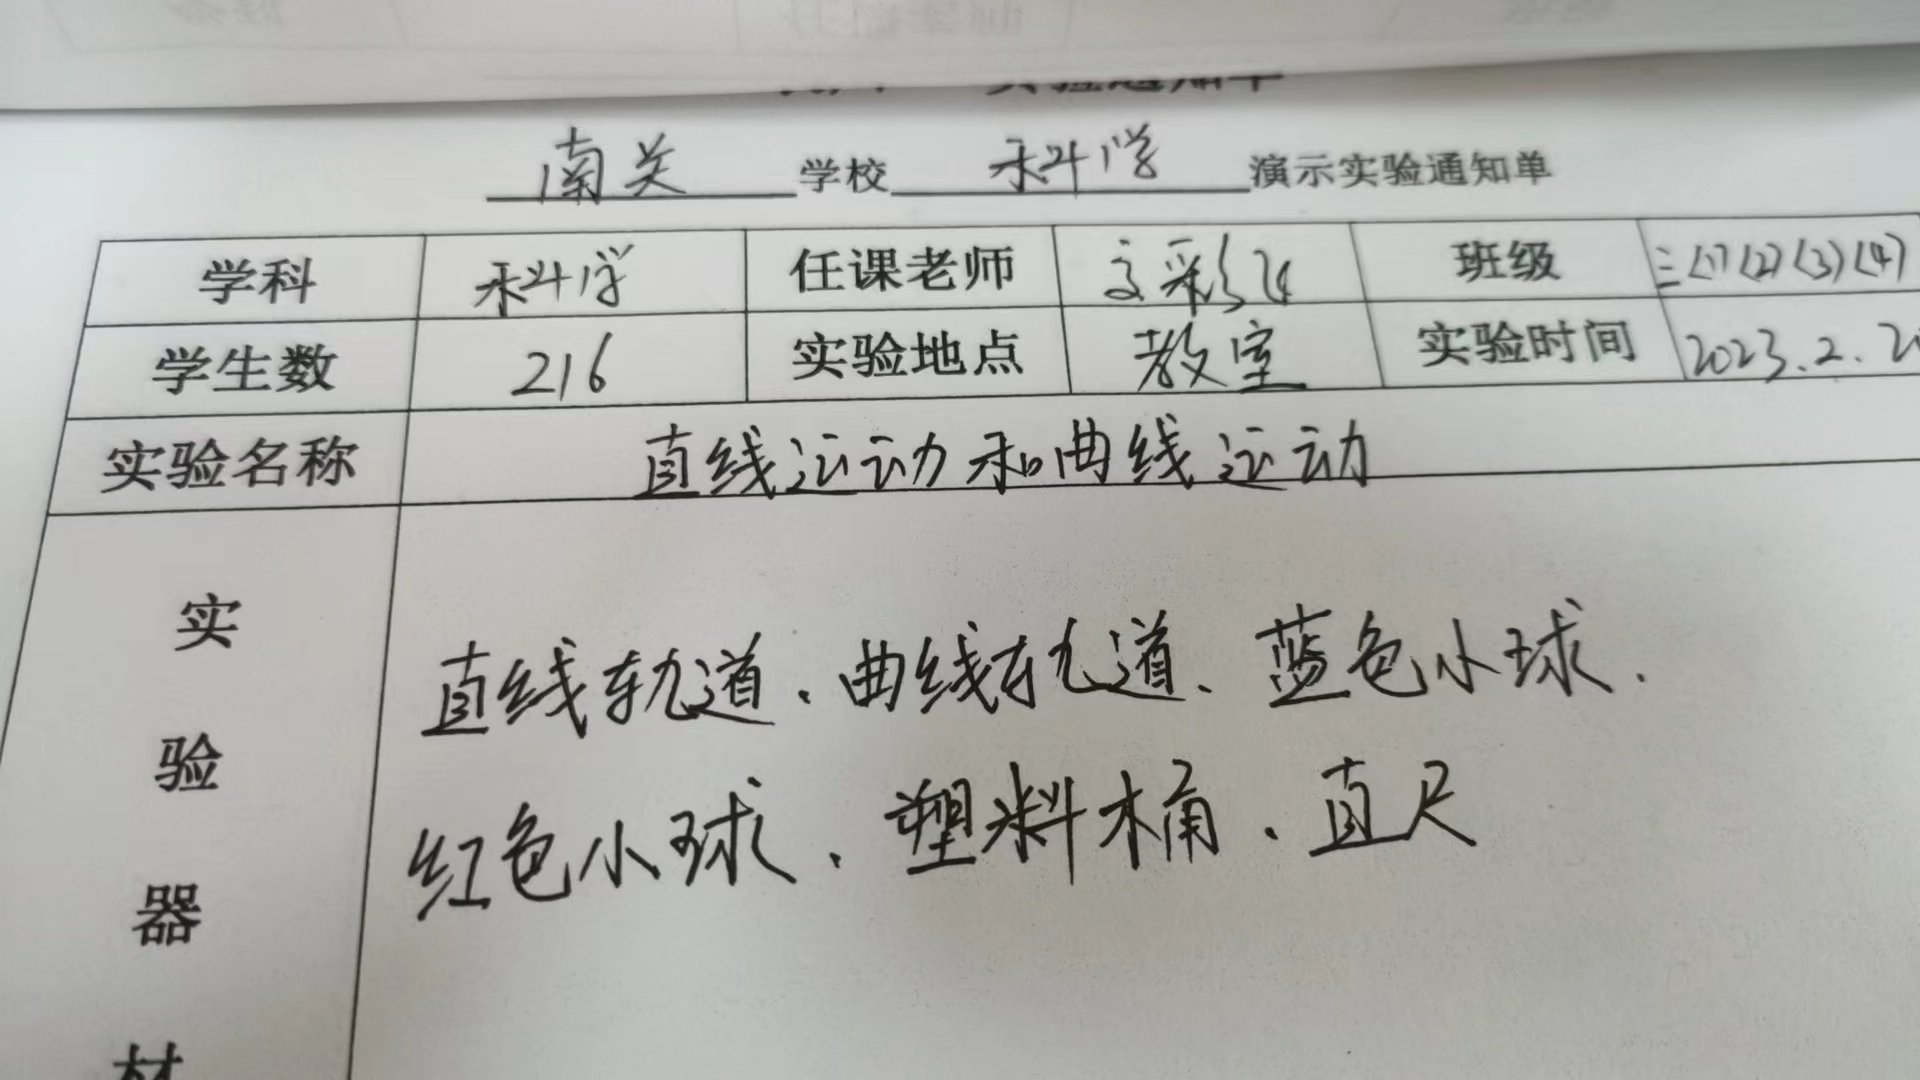 南关学校科学演示实验通知单
学科 科学 任课老师 文彩飞 班级 三(1)(2)(3)(4)
学生数 216 实验地点 教室 实验时间 2023.2.2
实验名称 直线运动和曲线运动
实
验
器
材
直线轨道、曲线轨道、蓝色小球、
红色小球、塑料桶、直尺